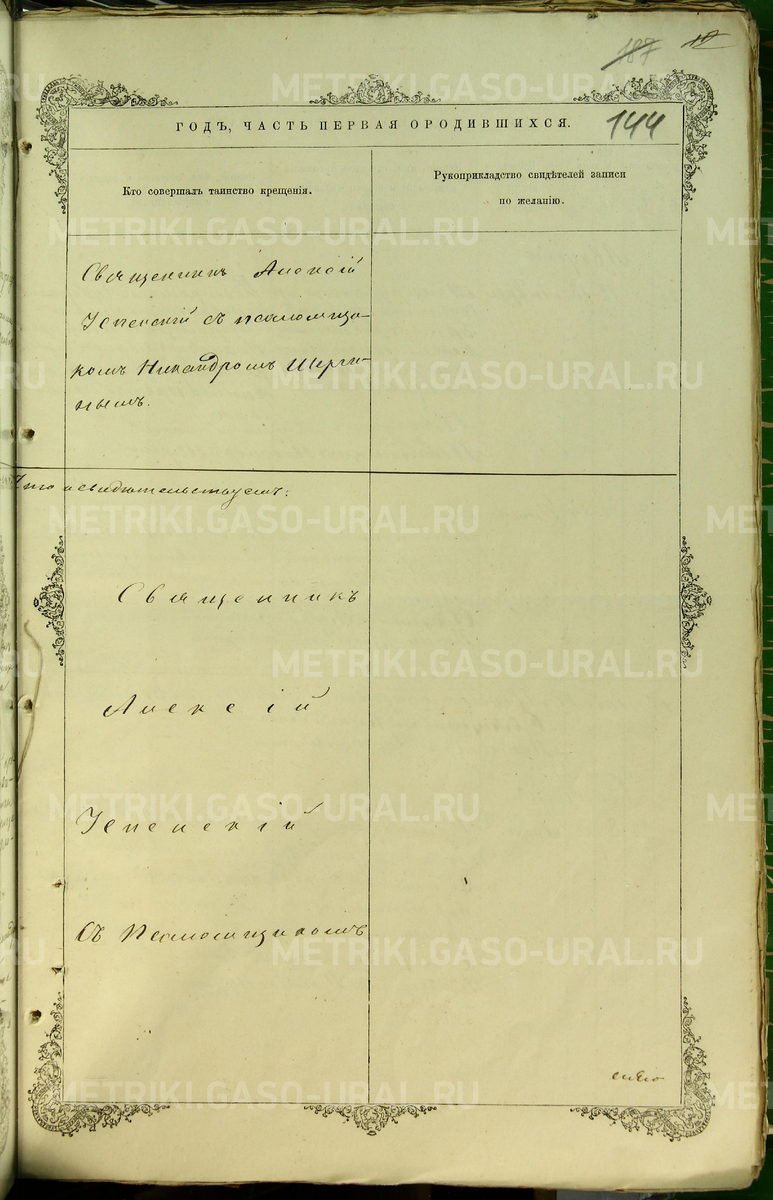 187 12
ГОДЪ, ЧАСТЬ ПЕРВАЯ О РОДИВШИХСЯ. 144
Кто совершалъ таинство крещенія.
Рукоприкладство свидѣтелей записи
по желанію.
Священникъ Алексій
Успенскій съ псаломщи-
комъ Никандромъ Шерги-
нымъ.
свидѣтельствуемъ:
Священникъ
Алексій
Успенскій
Съ Псаломщикомъ
METRIKI.GASO-URAL.RU